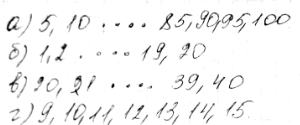 а) 5, 10 .... 85, 90, 95, 100
б) 1, 2 ..... 19, 20
в) 20, 21 .... 39, 40
г) 9, 10, 11, 12, 13, 14, 15.